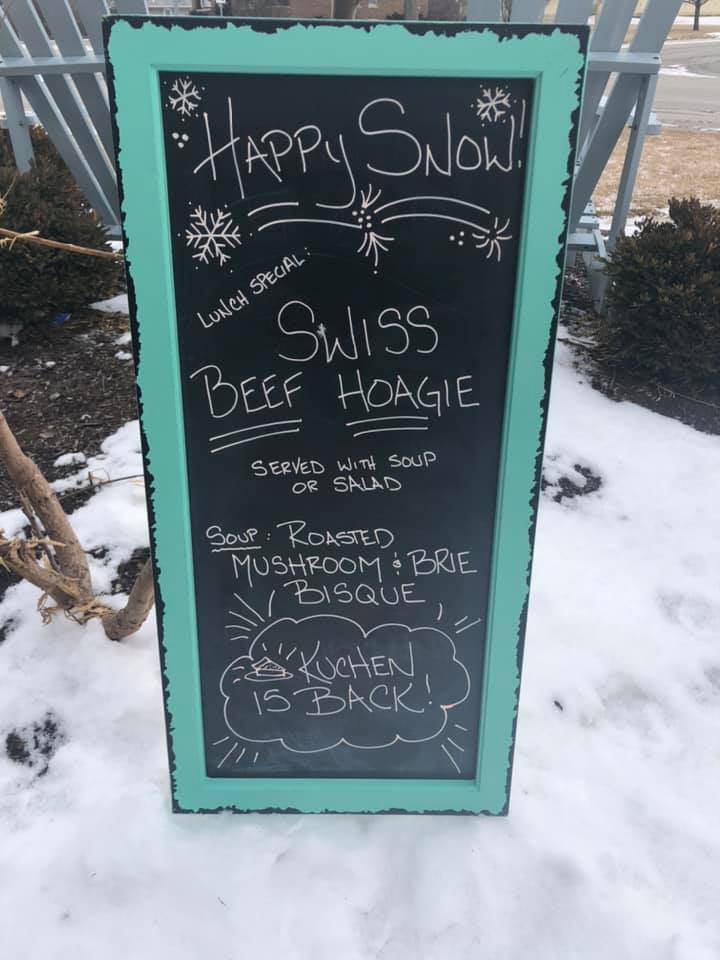 HAPPY SNOW!
LUNCH SPECIAL:
SWISS
BEEF HOAGIE
SERVED WITH SOUP
OR SALAD
SOUP: ROASTED
MUSHROOM & BRIE
BISQUE
KUCHEN
IS BACK!